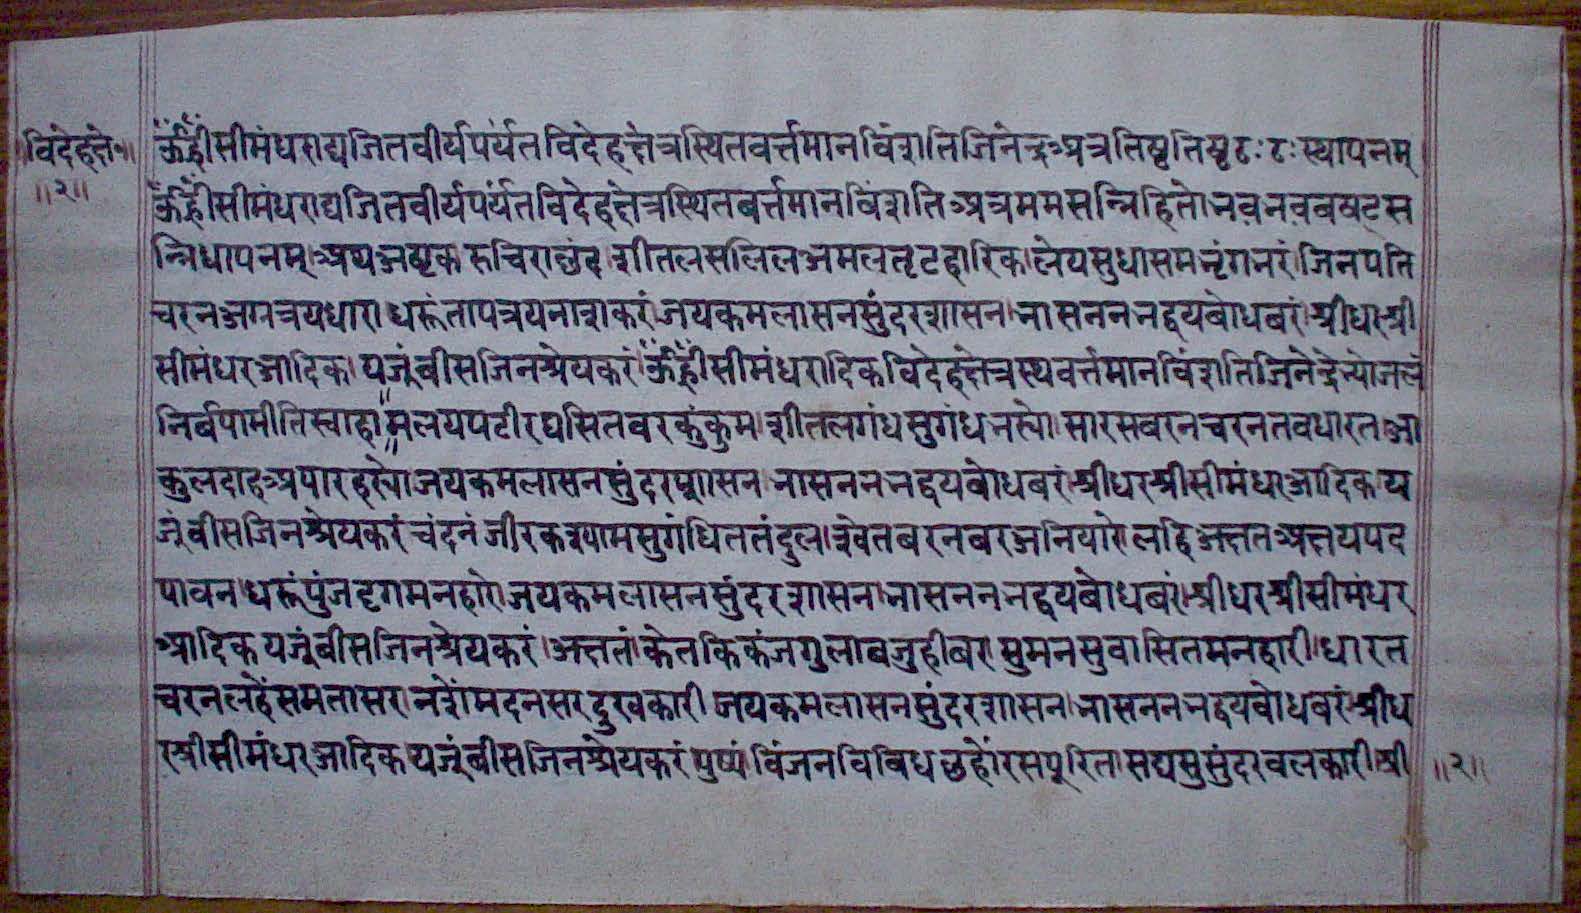 विदेहक्षे॰॥
॥२॥
ॐह्रींसीमंधराद्यजितवीर्यपर्यंतविदेहक्षेत्रस्थितवर्त्तमानविंशतिजिनेन्द्रअत्रतिष्ठतिष्ठठःठःस्थापनम्
ॐह्रींसीमंधराद्यजितवीर्यपर्यंतविदेहक्षेत्रस्थितबर्त्तमानविंशतिअत्रममसन्निहितोभवभवबषट्स
न्निधापनम्।अथअष्टक रुचिराछंद।शीतलसलिलअमलतृटहारिक।लेयसुधासमभृंगभरं।जिनपति
चरनअग्रत्रयधारा।धरूंतापत्रयनाशकरं।जयकमलासनसुंदरशासन।भासनननभद्वयबोधबरं।श्रीधरश्री
सीमंधरआदिक।यजूंबीसजिनश्रेयकरं।ॐह्रींसीमंधरादिकविदेहक्षेत्रस्थवर्त्तमानविंशतिजिनेन्द्रेभ्योजलं
निर्वपामीतिस्वाहा॥मलयपटीरघसितवरकुंकुम।शीतलगंधसुगंधभस्यो।सारसवरनचरनतवधारत।आ
कुलदाहअपारहस्यो।जयकमलासनसुंदरशासन।भासनननभद्वयबोधबरं।श्रीधरश्रीसीमंधरआदिक।य
जूंबीसजिनश्रेयकरं।चंदनं।जीरकश्यामसुगंधिततंदुल।श्वेतबरनबरअनियारे।लहिअक्षतअक्षयपद
पावन।धरूंपुंजदृगमनहारे।जयकमलासनसुंदरशासन।भासनननभद्वयबोधबरं।श्रीधरश्रीसीमंधर
आदिक।यजूंबीसजिनश्रेयकरं।अक्षतं।केतकिकंजगुलाबजुहीबर।सुमनसुवासितमनहारी।धारत
चरनलहेंसमतासर।नशेंमदनसरदुखकारी।जयकमलासनसुंदरशासन।भासनननभद्वयबोधबरं।श्रीध
रश्रीसीमंधरआदिक।यजूंबीसजिनश्रेयकरं।पुष्पं।विंजनविबिधछहोंरसपूरित।सद्यसुसुंदरवलकारी।श्री
॥२॥